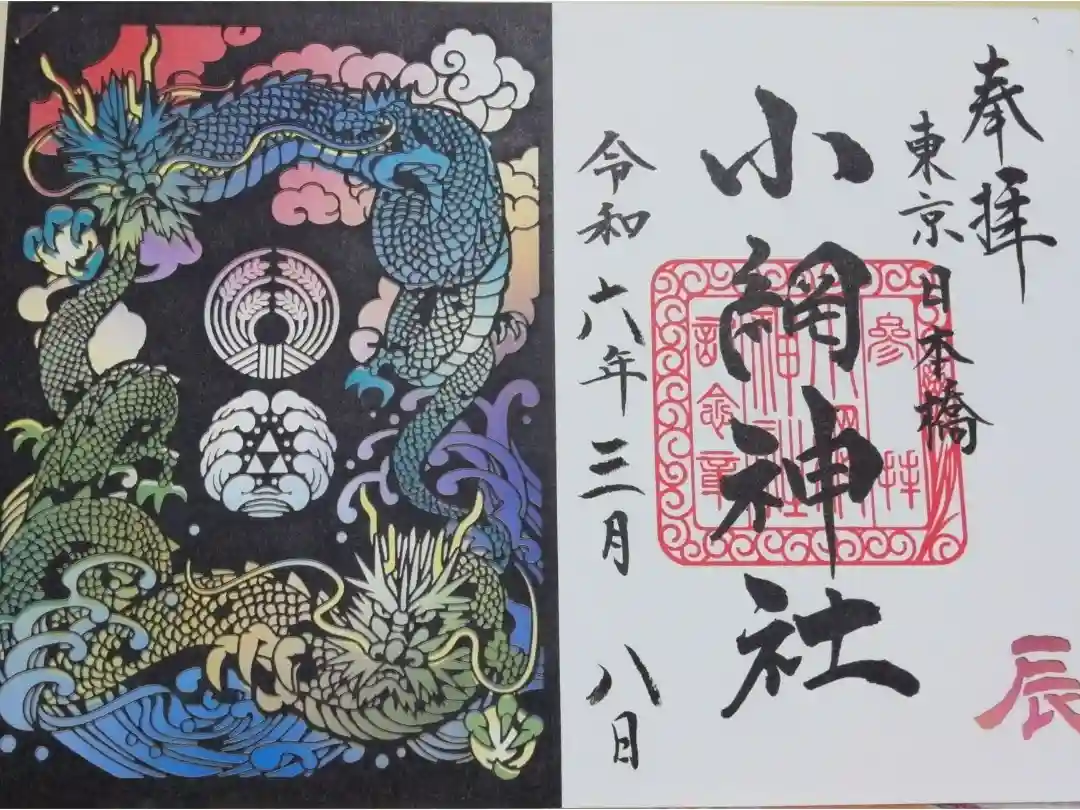 奉拝
東京
日本橋
小網神社
参拝
小網神社
記念章
令和六年三月八日
辰